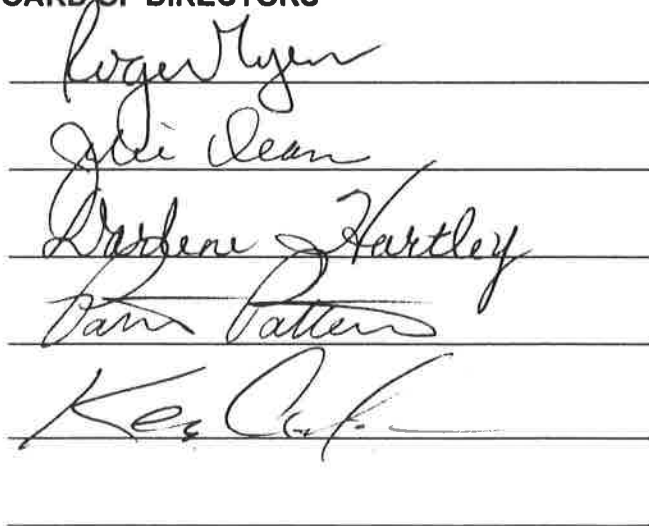 BOARD OF DIRECTORS
Roger Myers
Julie Dean
Darlene Hartley
Pam
Ken